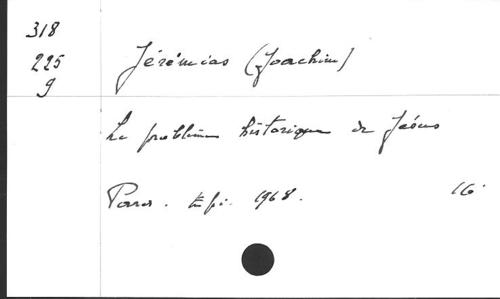 318
225
9
Jérémias (Joachim)
Le problème historique de Jésus
Paris. Epi. 1968. 16°